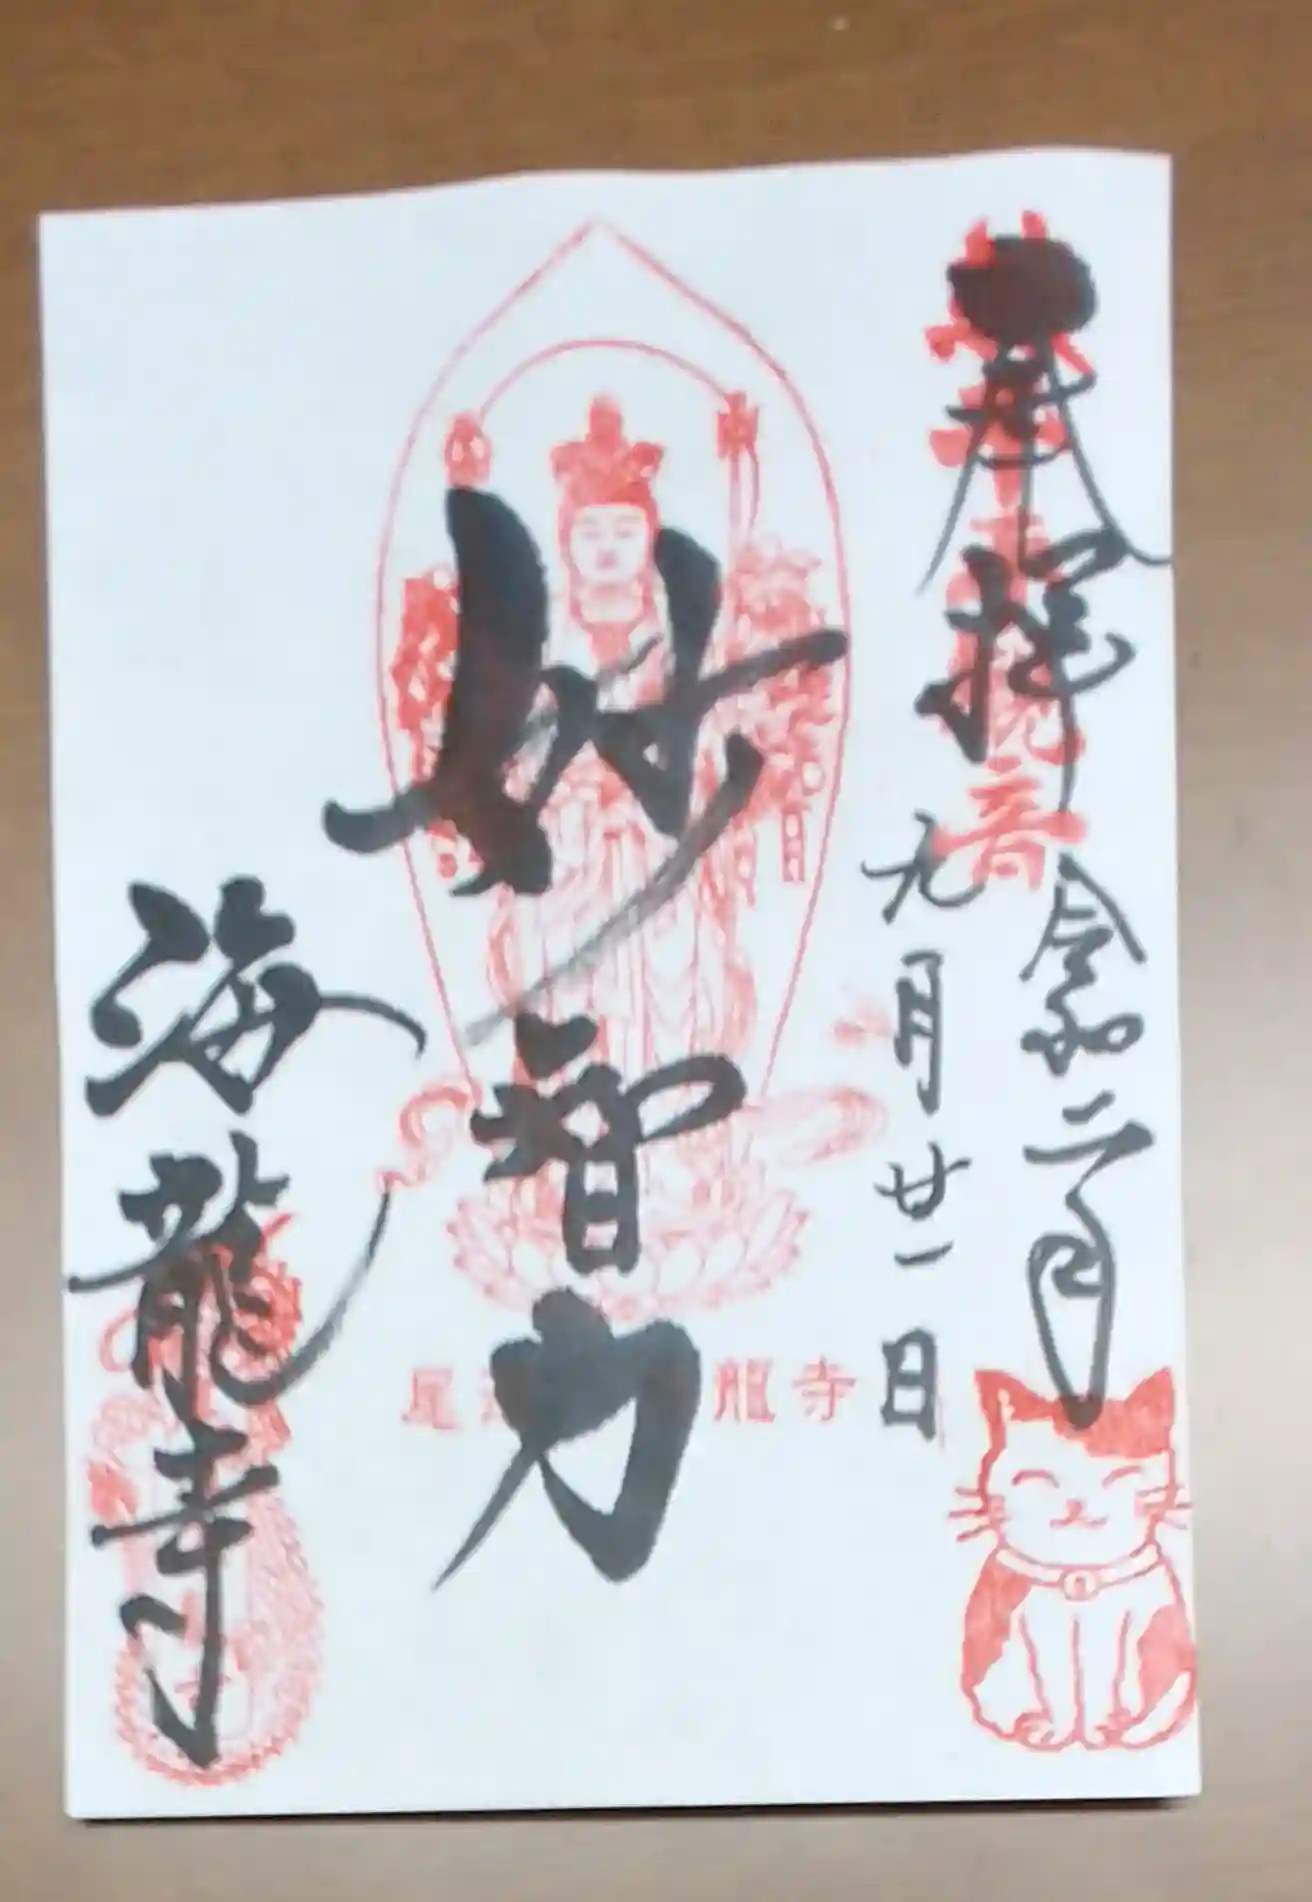 奉拝
令和二年
九月廿一日
妙智力
尾 龍寺
海龍寺